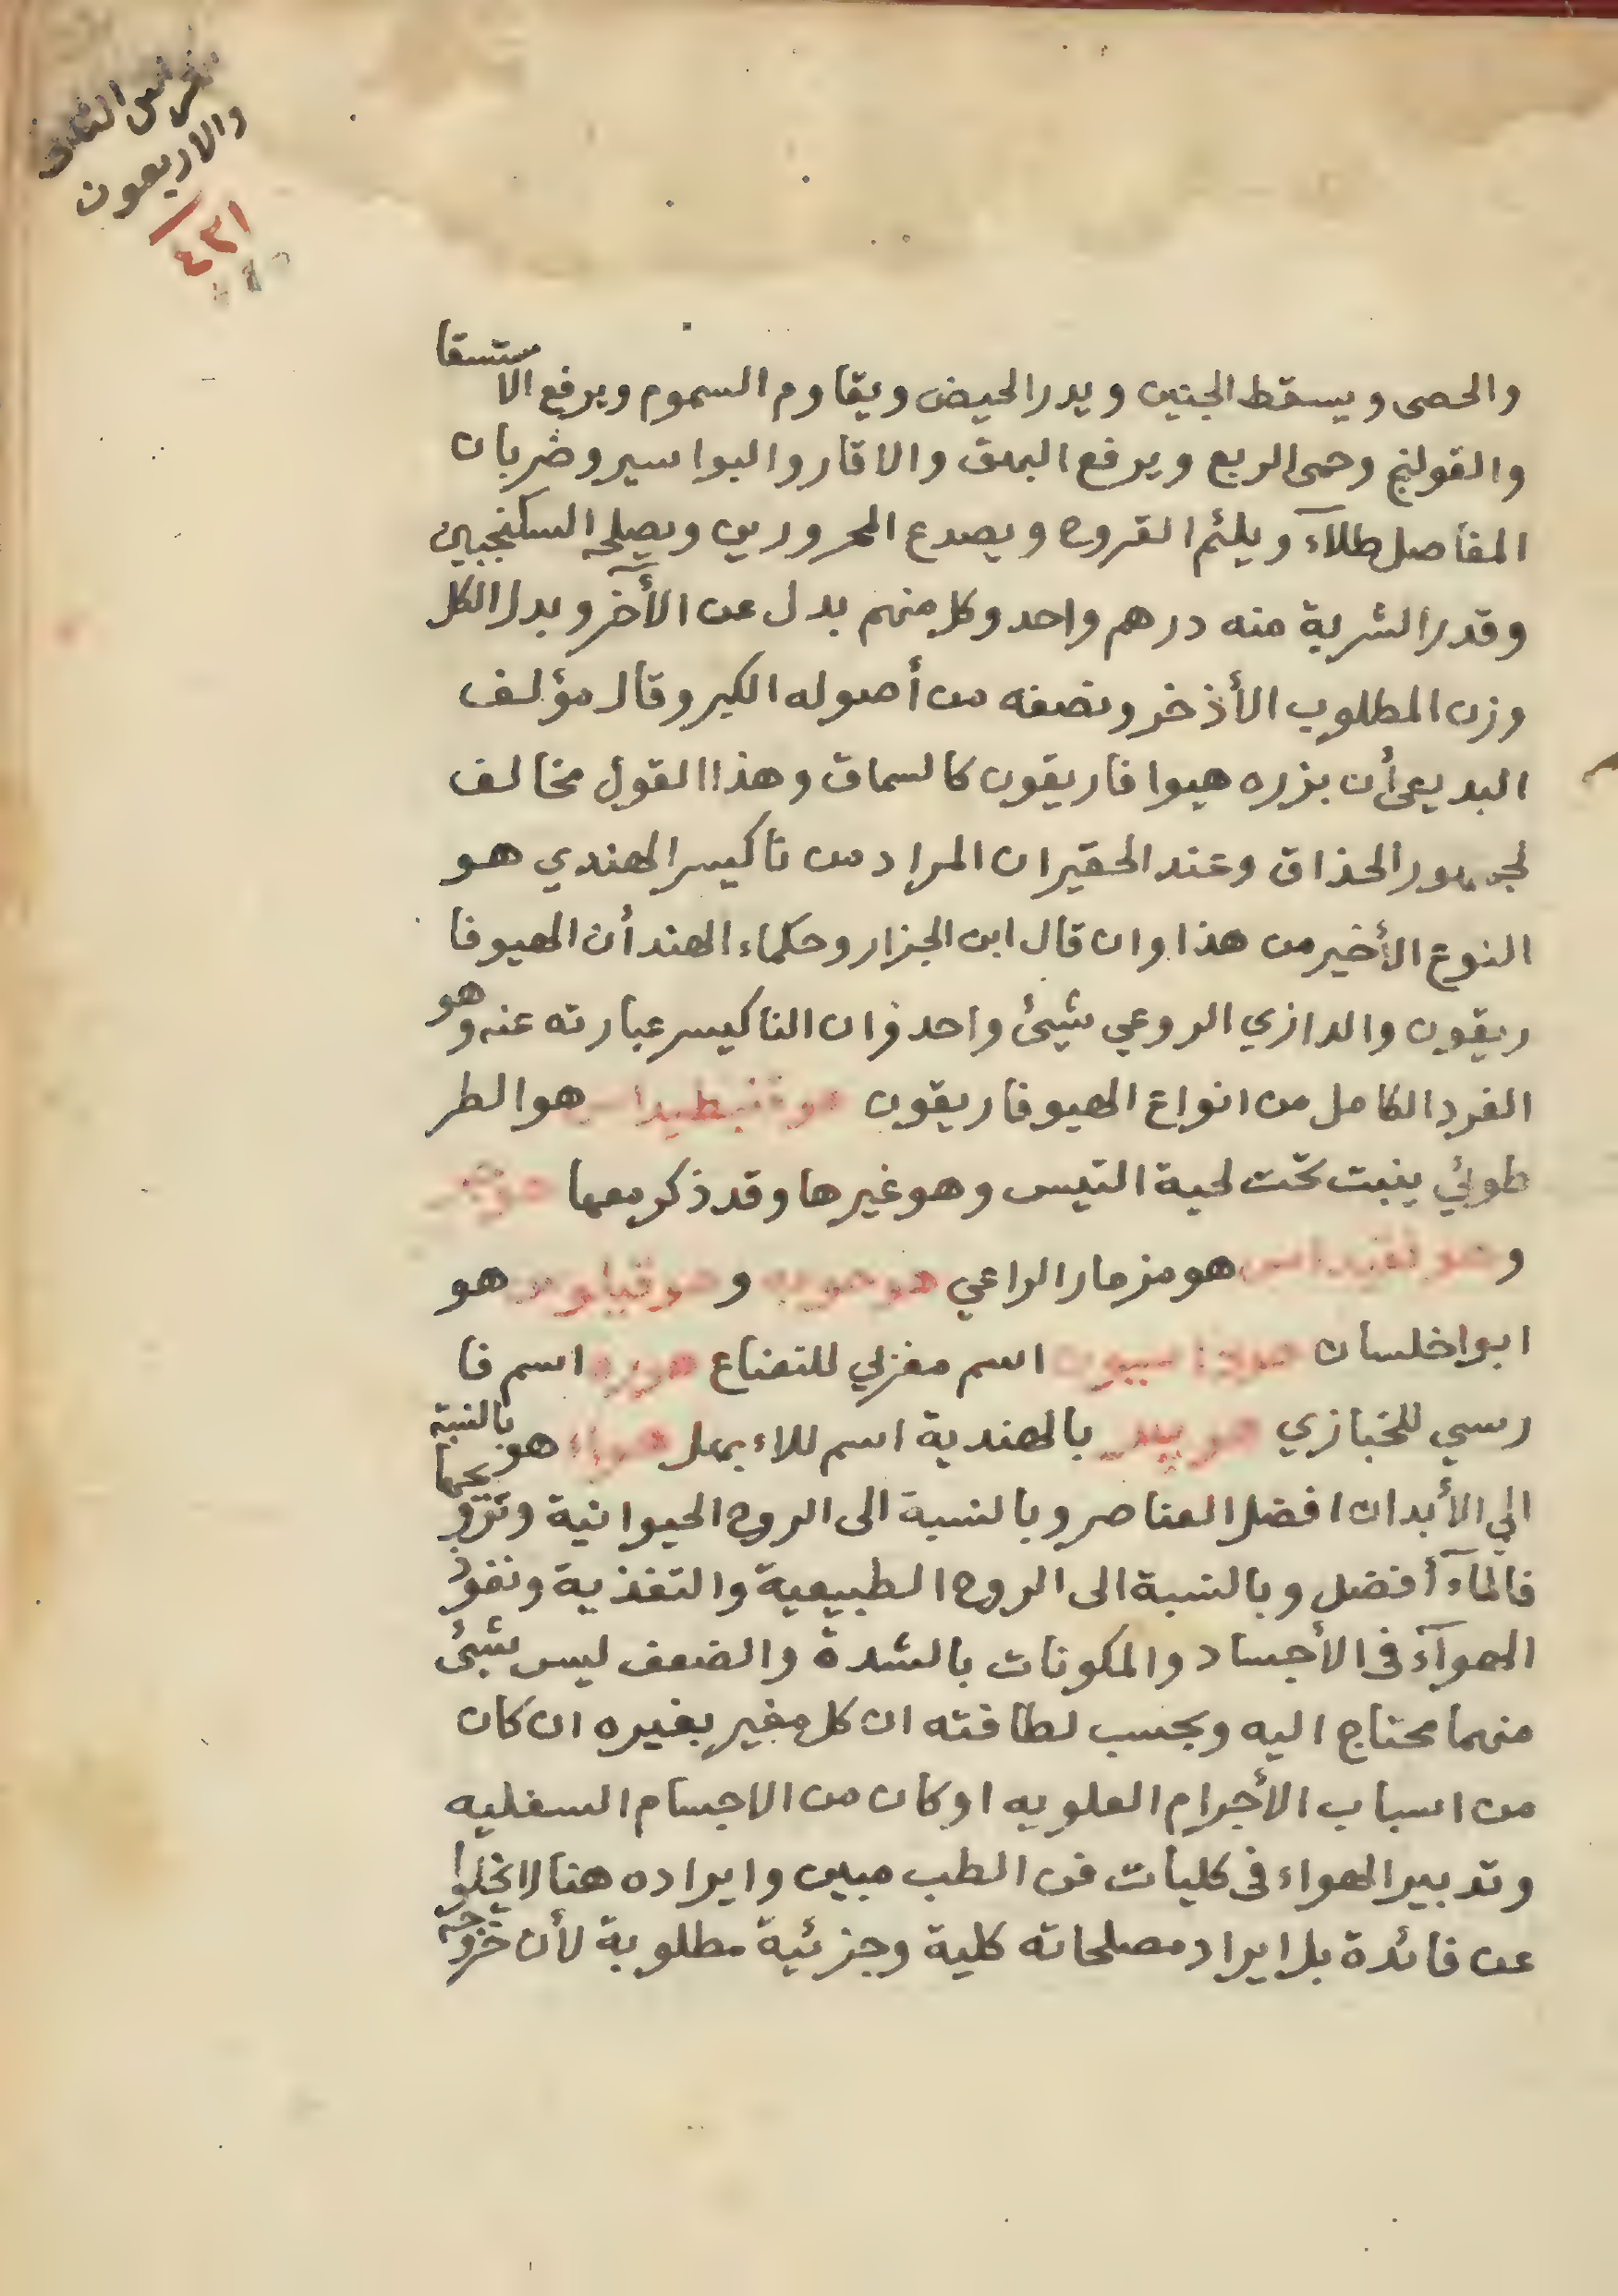 والاربعون
٤٣١
والحصى ويسقط الجنين ويدر الحيض ويقاوم السموم ويرفع الاستسقا
والقولنج وحمى الربع ويرفع البهق والاقار والبواسير وضربان
المفاصل طلآء ويلئم القروح ويصدع المحرورين ويصلحه السكنجبين
وقدر الشربة منه درهم واحد وكل منهم بدل عن الأخر وبدل الكل
وزن المطلوب الأذخر ونصفه من أصوله الكبر وقال مؤلف
البديعي أن بزره هيوافاريقون كالسماق وهذا القول مخالف
لجمهور الحذاق وعند الحقير ان المراد من ناكيسر الهندي هو
النوع الأخير من هذا وان قال ابن الجزار وحكماء الهند أن الهيوفا
ريقون والدازي الروعي شيئ واحد فان الناكيسر عبارته عنه وهو
الفرد الكامل من انواع الهيوفاريقون هو الطر
طوئي ينبت تحت لحية التيس وهو غيرها وقد ذكر معها
و هو مزمار الراعي و هو
ابو اخلسان اسم مغربي للنعناع اسم فا
رسي للخبازي بالهندية اسم للاء بهل هواء هو بالنسبة
الي الأبدان افضل العناصر وبالنسبة الى الروح الحيوانية وترويحها
فالمآء أفضل وبالنسبة الى الروح الطبيعية والتغذية ونفوذ
الهوآء في الأجساد والمكونات بالشدة والضعف ليس بشيئ
منهما محتاج اليه وبحسب لطافته ان كل مغير بغيره ان كان
من اسباب الأجرام العلويه او كان من الاجسام السفليه
وتدبير الهواء في كليات فن الطب مبين وايراده هنا لا يخلوا
عن فائدة بل ايراد مصلحاته كلية وجزئية مطلوبة لأن خروجه